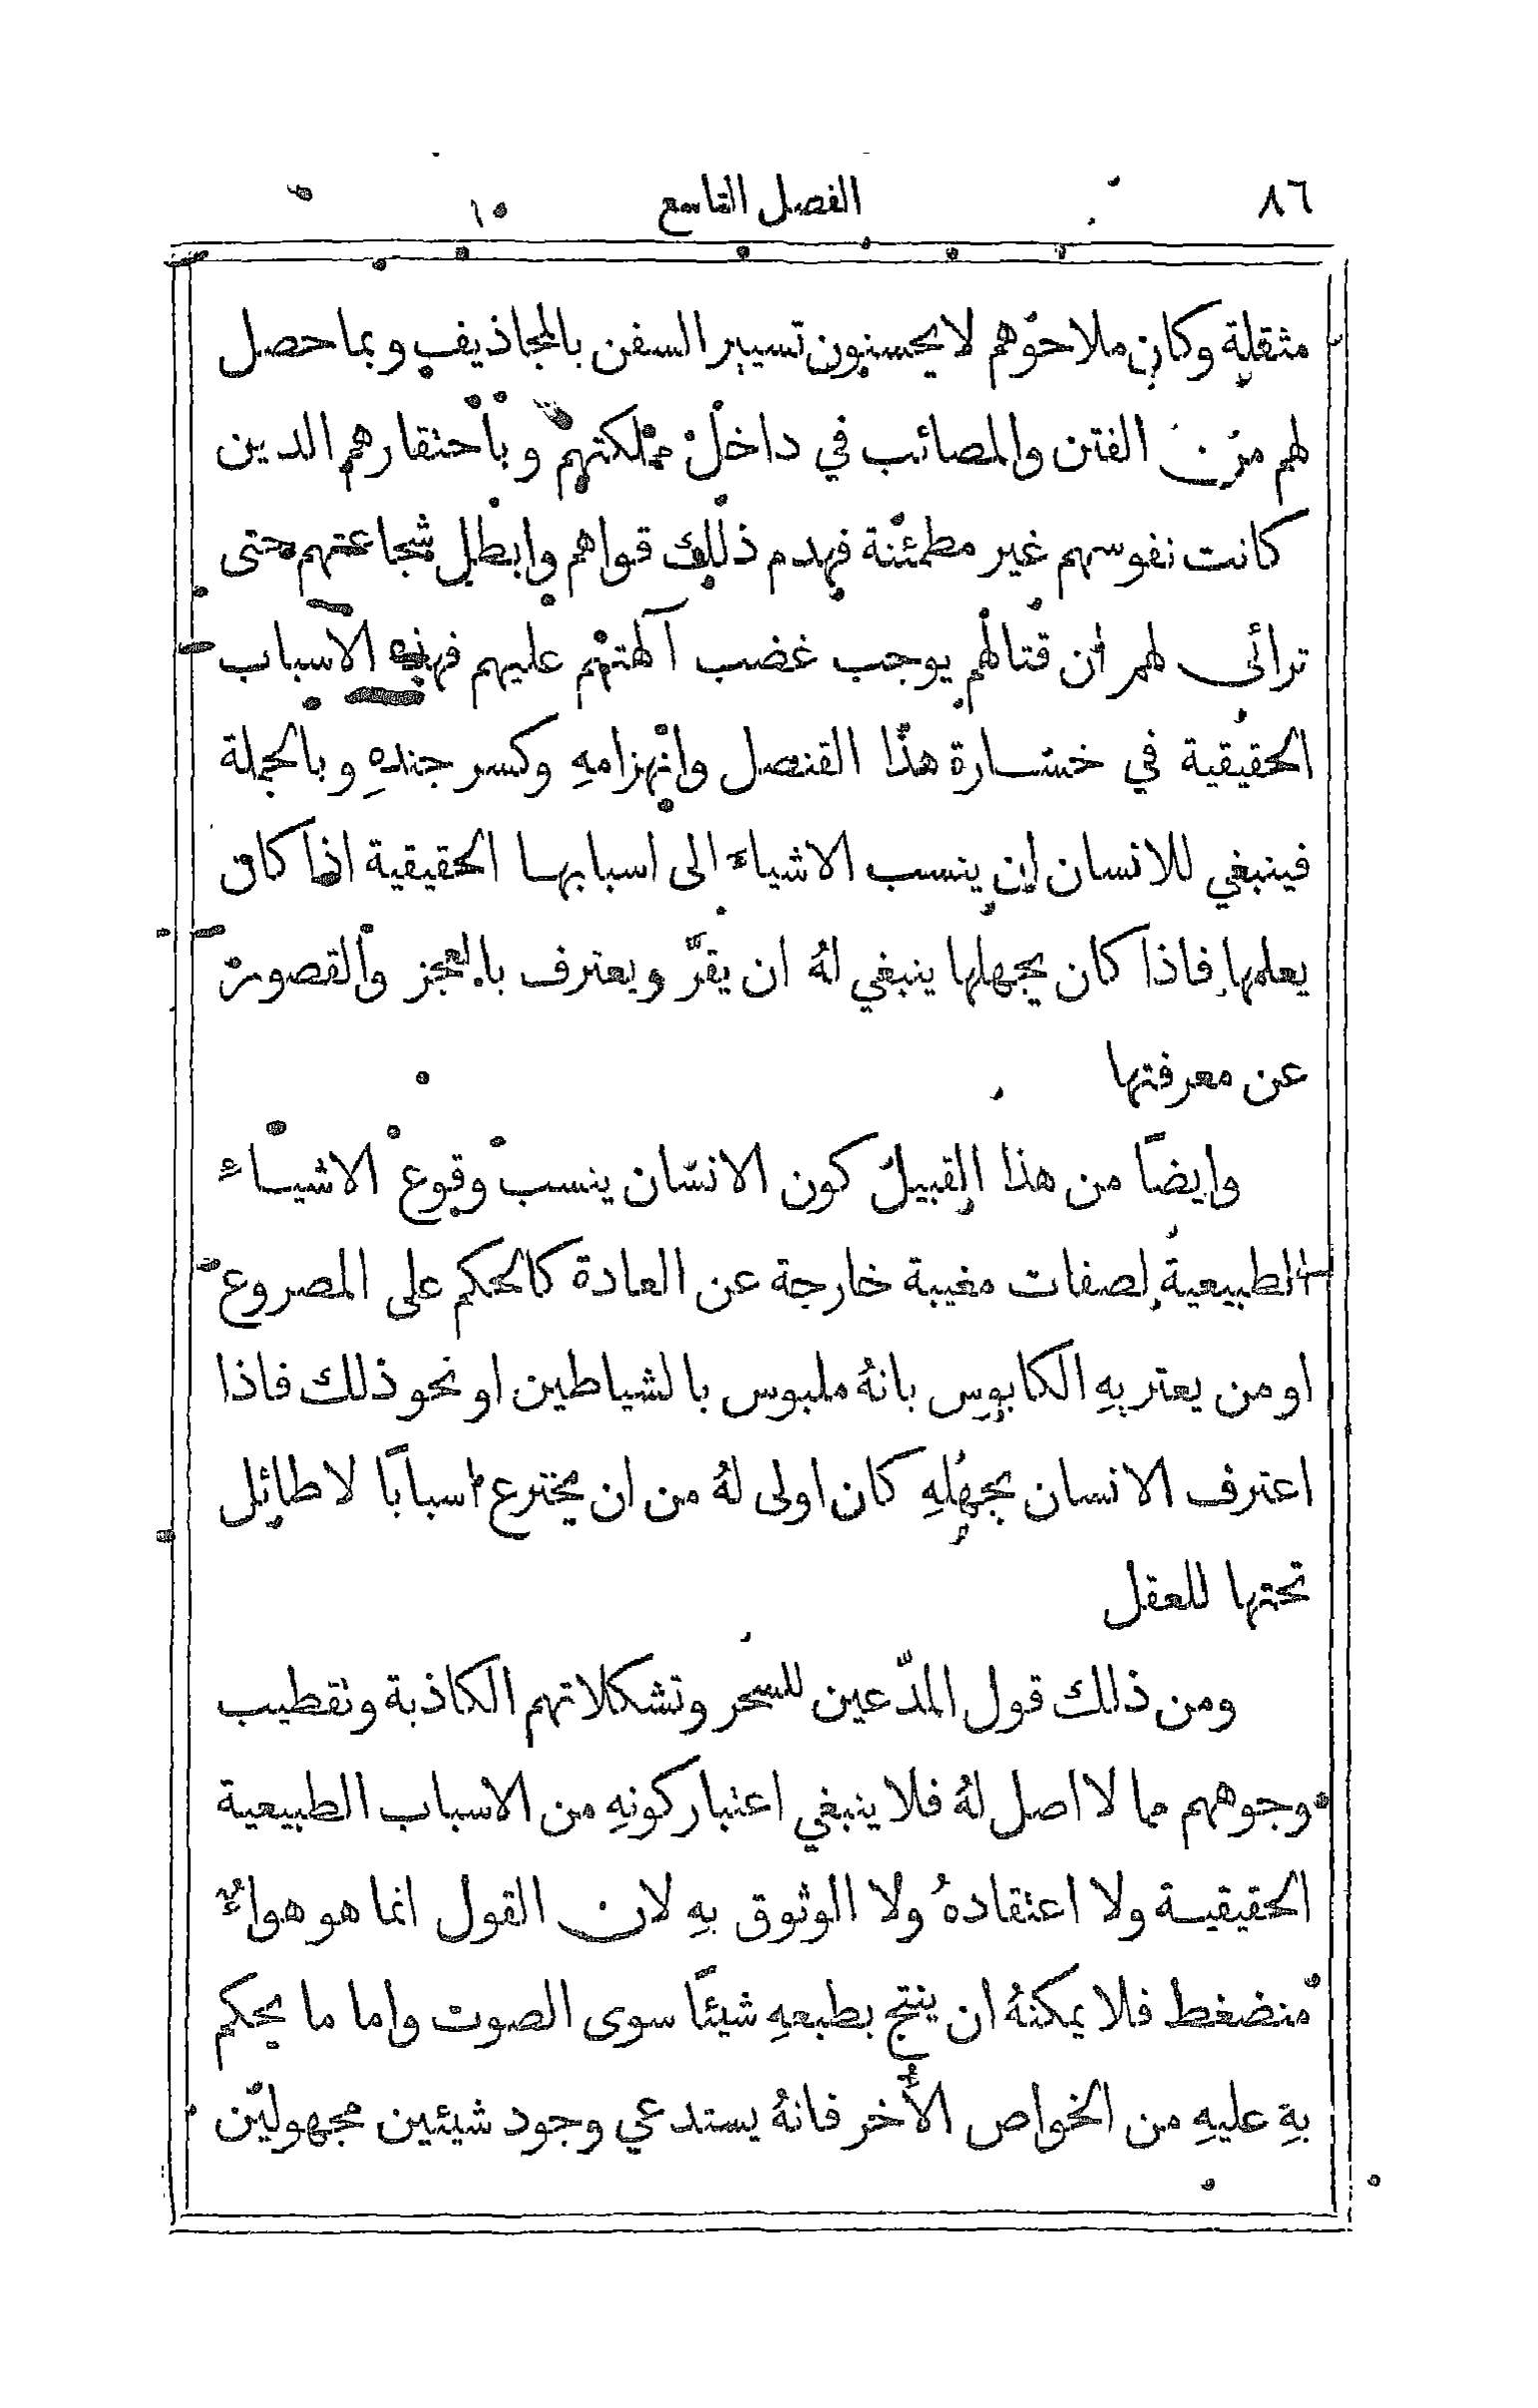 ٨٦ الفصل التاسع
مثقلة وكان ملاحوهم لا يحسنون تسيير السفن بالمجاذيف وبما حصل
لهم من الفتن والمصائب في داخل مملكتهم وباحتقارهم الدين
كانت نفوسهم غير مطمئنة فهدم ذلك قواهم وابطل شجاعتهم حتى
ترائى لهم ان قتالهم يوجب غضب آلهتهم عليهم فهذه الاسباب
الحقيقية في خسارة هذا القنصل وانهزامهِ وكسر جندهِ وبالجملة
فينبغي للانسان ان ينسب الاشياء الى اسبابها الحقيقية اذا كان
يعلمها فاذا كان يجهلها ينبغي لهُ ان يقرّ ويعترف بالعجز والقصور
عن معرفتها
وايضاً من هذا القبيل كون الانسان ينسب وقوع الاشياء
الطبيعية لصفات مغيبة خارجة عن العادة كالحكم على المصروع
او من يعتريهِ الكابوس بانهُ ملبوس بالشياطين او نحو ذلك فاذا
اعترف الانسان بجهلهِ كان اولى لهُ من ان يخترع اسباباً لا طائل
تحتها للعقل
ومن ذلك قول المدّعين للسحر وتشكلاتهم الكاذبة وتقطيب
وجوههم مما لا اصل لهُ فلا ينبغي اعتبار كونهِ من الاسباب الطبيعية
الحقيقية ولا اعتقادهُ ولا الوثوق بهِ لان القول انما هو هواءٌ
منضغط فلا يمكنهُ ان ينتج بطبعهِ شيئاً سوى الصوت واما ما يحكم
بهِ عليهِ من الخواص الأُخر فانهُ يستدعي وجود شيئين مجهولين